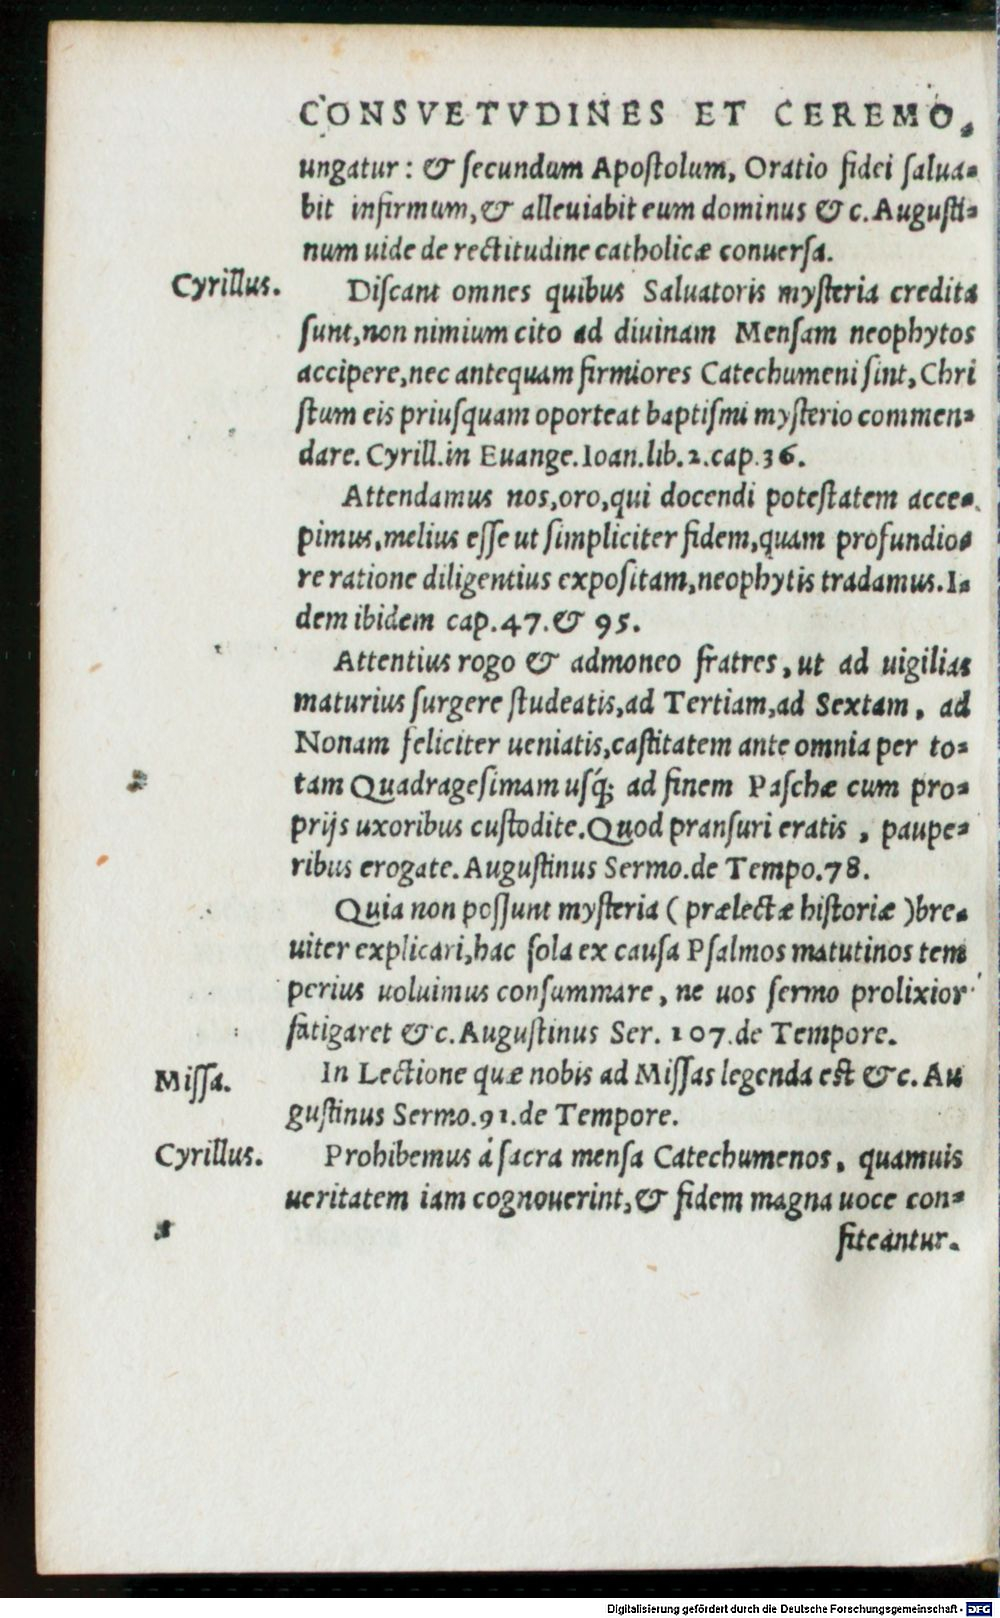 CONSVETVDINES ET CEREMO,
ungatur: & ſecundum Apoſtolum, Oratio fidei ſalua=
bit infirmum, & alleuiabit eum dominus & c. Auguſti=
num uide de rectitudine catholicæ conuerſa.
Cyrillus.
Diſcant omnes quibus Saluatoris myſteria credita
ſunt, non nimium cito ad diuinam Menſam neophytos
accipere, nec antequam firmiores Catechumeni ſint, Chri
ſtum eis priuſquam oporteat baptiſmi myſterio commen=
dare. Cyrill. in Euange. Ioan. lib. 2. cap. 36.
Attendamus nos, oro, qui docendi poteſtatem acce=
pimus, melius eſſe ut ſimpliciter fidem, quam profundio=
re ratione diligentius expoſitam, neophytis tradamus. I=
dem ibidem cap. 47. & 95.
Attentius rogo & admoneo fratres, ut ad uigilias
maturius ſurgere ſtudeatis, ad Tertiam, ad Sextam, ad
Nonam feliciter ueniatis, caſtitatem ante omnia per to=
tam Quadrageſimam uſq; ad finem Paſchæ cum pro=
prijs uxoribus cuſtodite. Quod pranſuri eratis, paupe=
ribus erogate. Auguſtinus Sermo. de Tempo. 78.
Quia non poſſunt myſteria ( prælectæ hiſtoriæ ) bre=
uiter explicari, hac ſola ex cauſa Pſalmos matutinos tem
perius uoluimus conſummare, ne uos ſermo prolixior
fatigaret & c. Auguſtinus Ser. 107. de Tempore.
Miſſa.
In Lectione quæ nobis ad Miſſas legenda eſt & c. Au
guſtinus Sermo. 91. de Tempore.
Cyrillus.
Prohibemus á ſacra menſa Catechumenos, quamuis
ueritatem iam cognouerint, & fidem magna uoce con=
fiteantur.
Digitalisierung gefördert durch die Deutsche Forschungsgemeinschaft - DFG